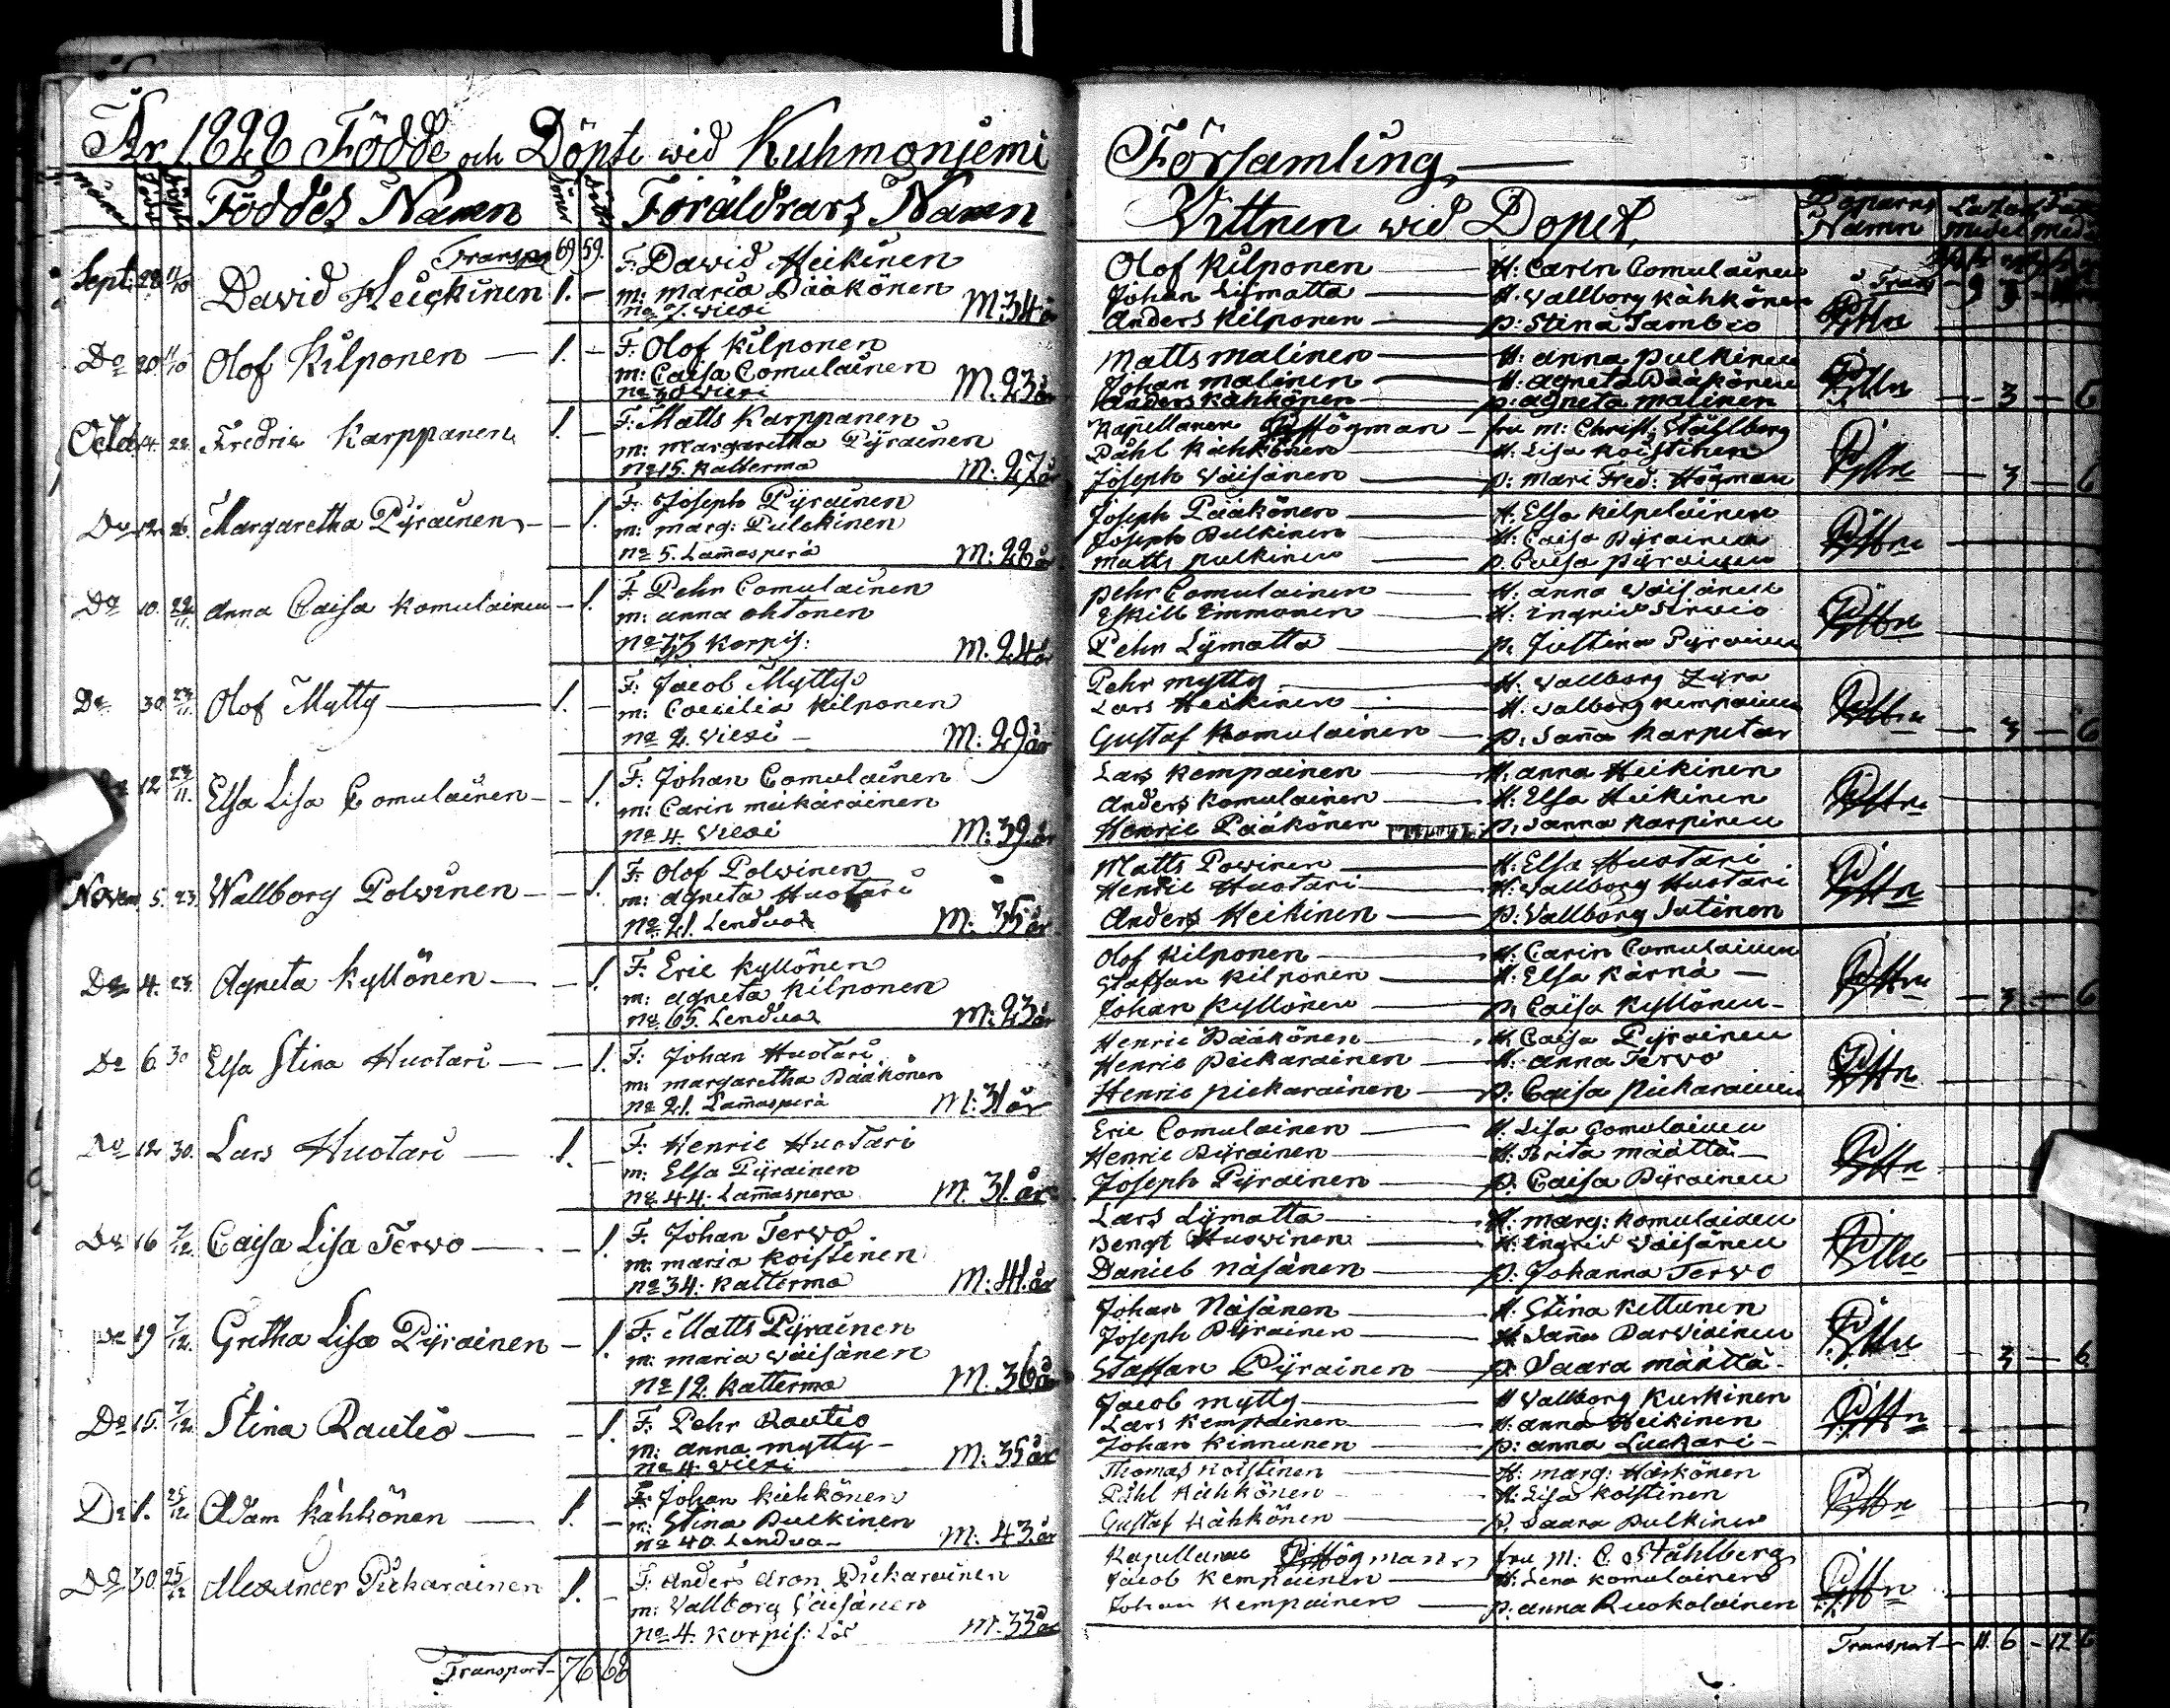 År 1828 Födde och Döpte wid Kuhmonjemi Församling,
Månad Född Döpt Föddes Namn Söner Föräldrars Namn Vittnen wid Dopet, Namn
Transp 69 59. Trans
Sept: 28 11/10 David Heickinen 1. –
F: David Heikinen
m: Maria Pääkönen
No 7. Wiexi M: 34 år
Olof Kilponen — H: Carin Comulainen
Johan Lijmatta — H: Wallborg Kähkönen
Anders Kilponen — p: Stina Tambio
Do 20 11/10 Olof Kilponen — 1. –
F: Olof Kilponen
m: Caisa Comulainen
No 30 Wiexi M: 23 år
Matts Malinen — H: Anna Pulkinen
Johan Malinen — H: Agneta Pääkönen
Anders Kähkönen — p: Agneta Malinen — 3 — 6
Octob 4. 22. Fredric Karppanen 1. –
F: Matts Karppanen
m: Margaretha Pyrainen
No 15. Katterma M: 27 år
Kapellanen Högman — fru M: Christ: Ståhlberg
Påhl Kähkönen — H: Lisa Koistinen
Joseph Väisänen — p: Mari Fred: Högman — 3 — 6
Do 12. 26. Margaretha Pyrainen – – 1.
F: Joseph Pyrainen
m: Marg: Pulckinen
No 5. Lam̄asperä M: 28 år
Joseph Pääkönen — H: Elsa Kilpeläinen
Joseph Pulkinen — H: Caisa Pyrainen
Matts Pulkinen — p: Caisa Pyrainen
Do 10. 22/11 Anna Caisa Komulainen – 1.
F: Pehr Comulainen
m: Anna Ohtonen
No 33 Korpis: M: 24 år
Pehr Comulainen — H: Anna Väisänen
Eskill Timmonen — H: Ingrid Sirviö
Pehr Lijmatta — p: Justina Pyrainen
Do 30 23/11. Olof Mytty — 1. –
F: Jacob Mytty
m: Coecilia Kilponen
No 2. Wiexi – M: 29 år
Pehr Mytty — H: Wallborg Zyra
Lars Heikinen — H: Walborg Kempainen
Gustaf Komulainen — p: San̄a Karpitar — 3 — 6
12 23/11. Elsa Lisa Comulainen – – 1.
F: Johan Comulainen
m: Carin Mikäräinen
No 4 Wiexi M: 39 år
Lars Kempainen — H: Anna Heikinen
Anders Komulainen — H: Elsa Heikinen
Henric Pääkönen — p: Sanna Karpinen
Novem 5. 23. Wallborg Polvinen – – 1.
F: Olof Polvinen
m: Agneta Huotari
No 21. Lendua M: 35 år
Matts Powinen — H: Elsa Huotari
Henric Huotari — H: Wallborg Huotari
Anders Heikinen — p: Vallborg Sutinen
Do 4. 23. Agneta Kyllönen – – 1.
F: Eric Kyllönen
m: Agneta Kilponen
No 65. Lendua M: 23 år
Olof Kilponen — H: Carin Comulainen
Staffan Kilponen — H: Elsa Kärnä —
Johan Kyllönen — p: Caisa Kyllönen – — 3 — 6
Do 6. 30 Elsa Stina Huotari — – 1.
F: Johan Huotari
m: Margaretha Pääkönen
No 21. Lam̄asperä M: 31 år
Henric Pääkönen — H: Caisa Pyrainen
Henric Pickarainen — H: Anna Tervo
Henric Pickarainen — p: Caisa Pickarainen
Do 12 30. Lars Huotari — 1. –
F: Henric Huotari
m: Elsa Pyrainen
No 44. Lam̄aspera M: 31. år
Eric Comulainen — H: Lisa Comulainen
Henric Pyrainen — H: Brita Määttä —
Joseph Pyrainen — p: Caisa Pyrainen
Do 16 7/12. Caisa Lisa Tervo — – 1.
F: Johan Tervo
m: Maria Koistinen
No 34. Katterma M: 41. år
Lars Lijmatta — H: Marg: Komulainen
Bengt Huovinen — H: Ingrid Väisänen
Daniel Näsänen — p: Johanna Tervo
Do 19 7/12. Gretha Lisa Pyrainen – 1.
F: Matts Pyrainen
m: Maria Väisänen
No 12. Katterma M. 36 år
Johan Näsänen — H: Stina Kettunen
Joseph Pyrainen — H: San̄a Parviainen
Staffan Pyrainen — p: Saara Määttä – — 3 — 6.
Do 15. 7/12. Stina Rautio — – 1.
F: Pehr Rautio
m: Anna Mytty –
No 4. Wiexi M: 35 år
Jacob Mytty — H Vallborg Kurkinen
Lars Kempainen — H: Anna Heikinen
Johan Kinnunen — p: Anna Luckari –
Do 1. 25/12. Adam Kähkönen — 1. –
F: Johan Kähkönen
m: Stina Pulkinen
No 40. Lendua – M: 43. år
Thomas Koistinen — H: Marg: Härkönen
Påhl Kähkönen — H: Lisa Koistinen
Gustaf Kähkönen — p: Saara Pulkinen
Do 30. 25/12 Alexander Pickarainen 1. –
F: Anders Aron Pickarainen
m: Vallborg Väisänen
No 4. Korpis: M: 33 år
Kapellanen Högman, fru M: C. Ståhlberg
Jacob Kempainen — H: Lena Komulainen
Johan Kempainen — p: Anna Ruokolainen
Transport – 76 68 Transport – 11 6 – 17 6